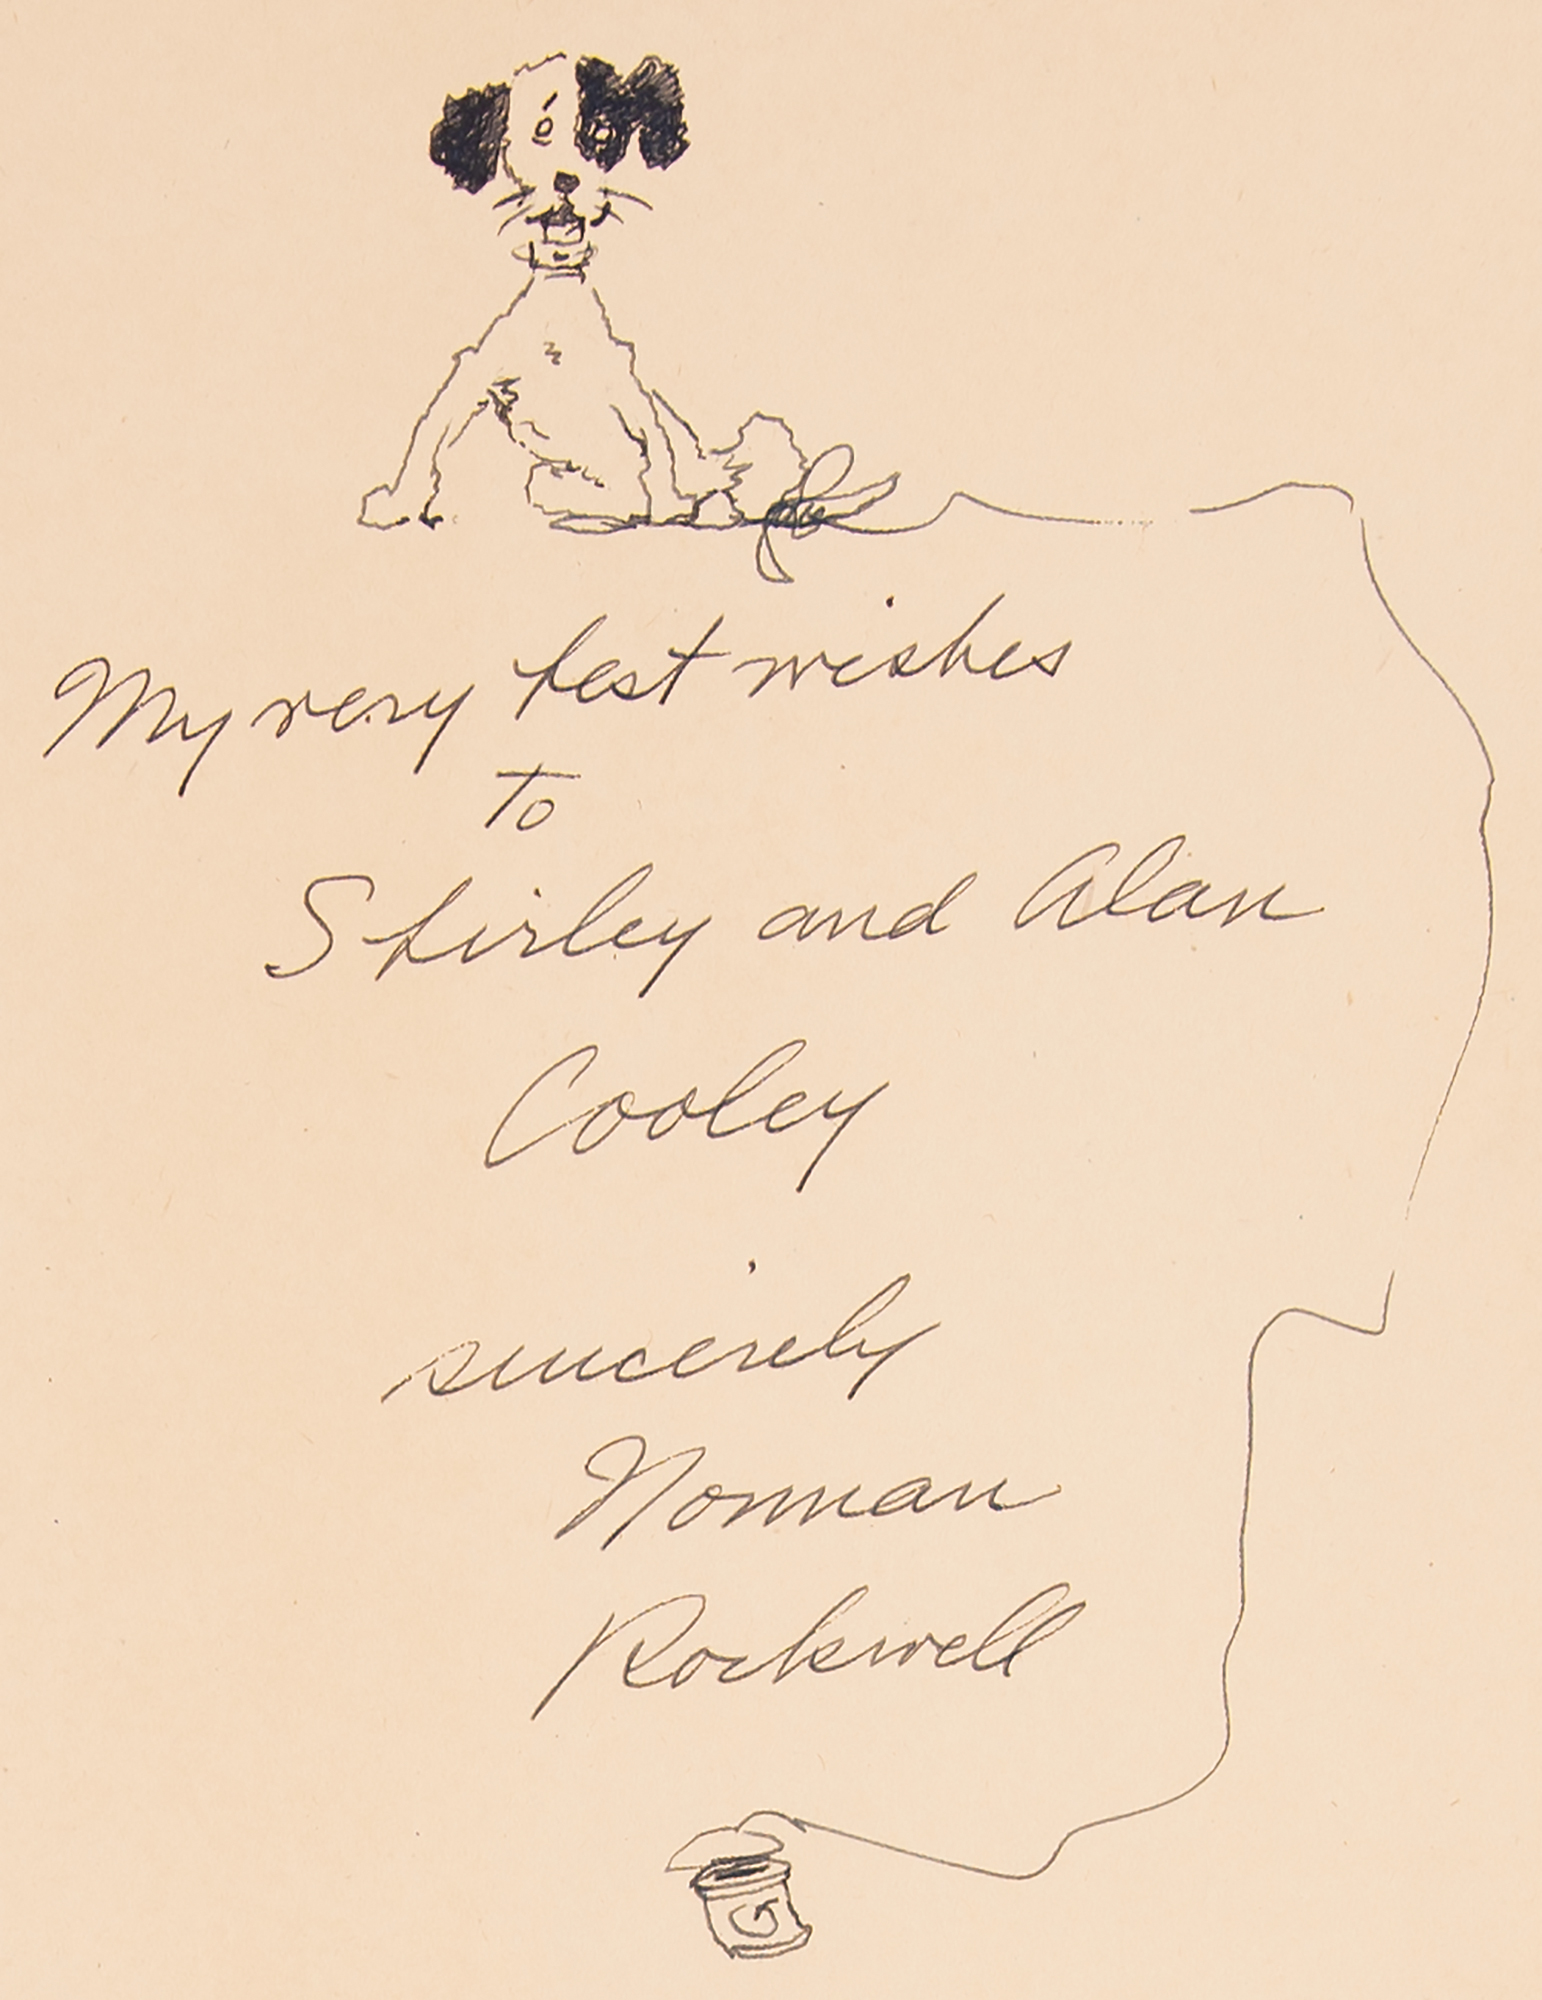 My very best wishes
to
Shirley and Alan
Cooley
sincerely
Norman
Rockwell
G